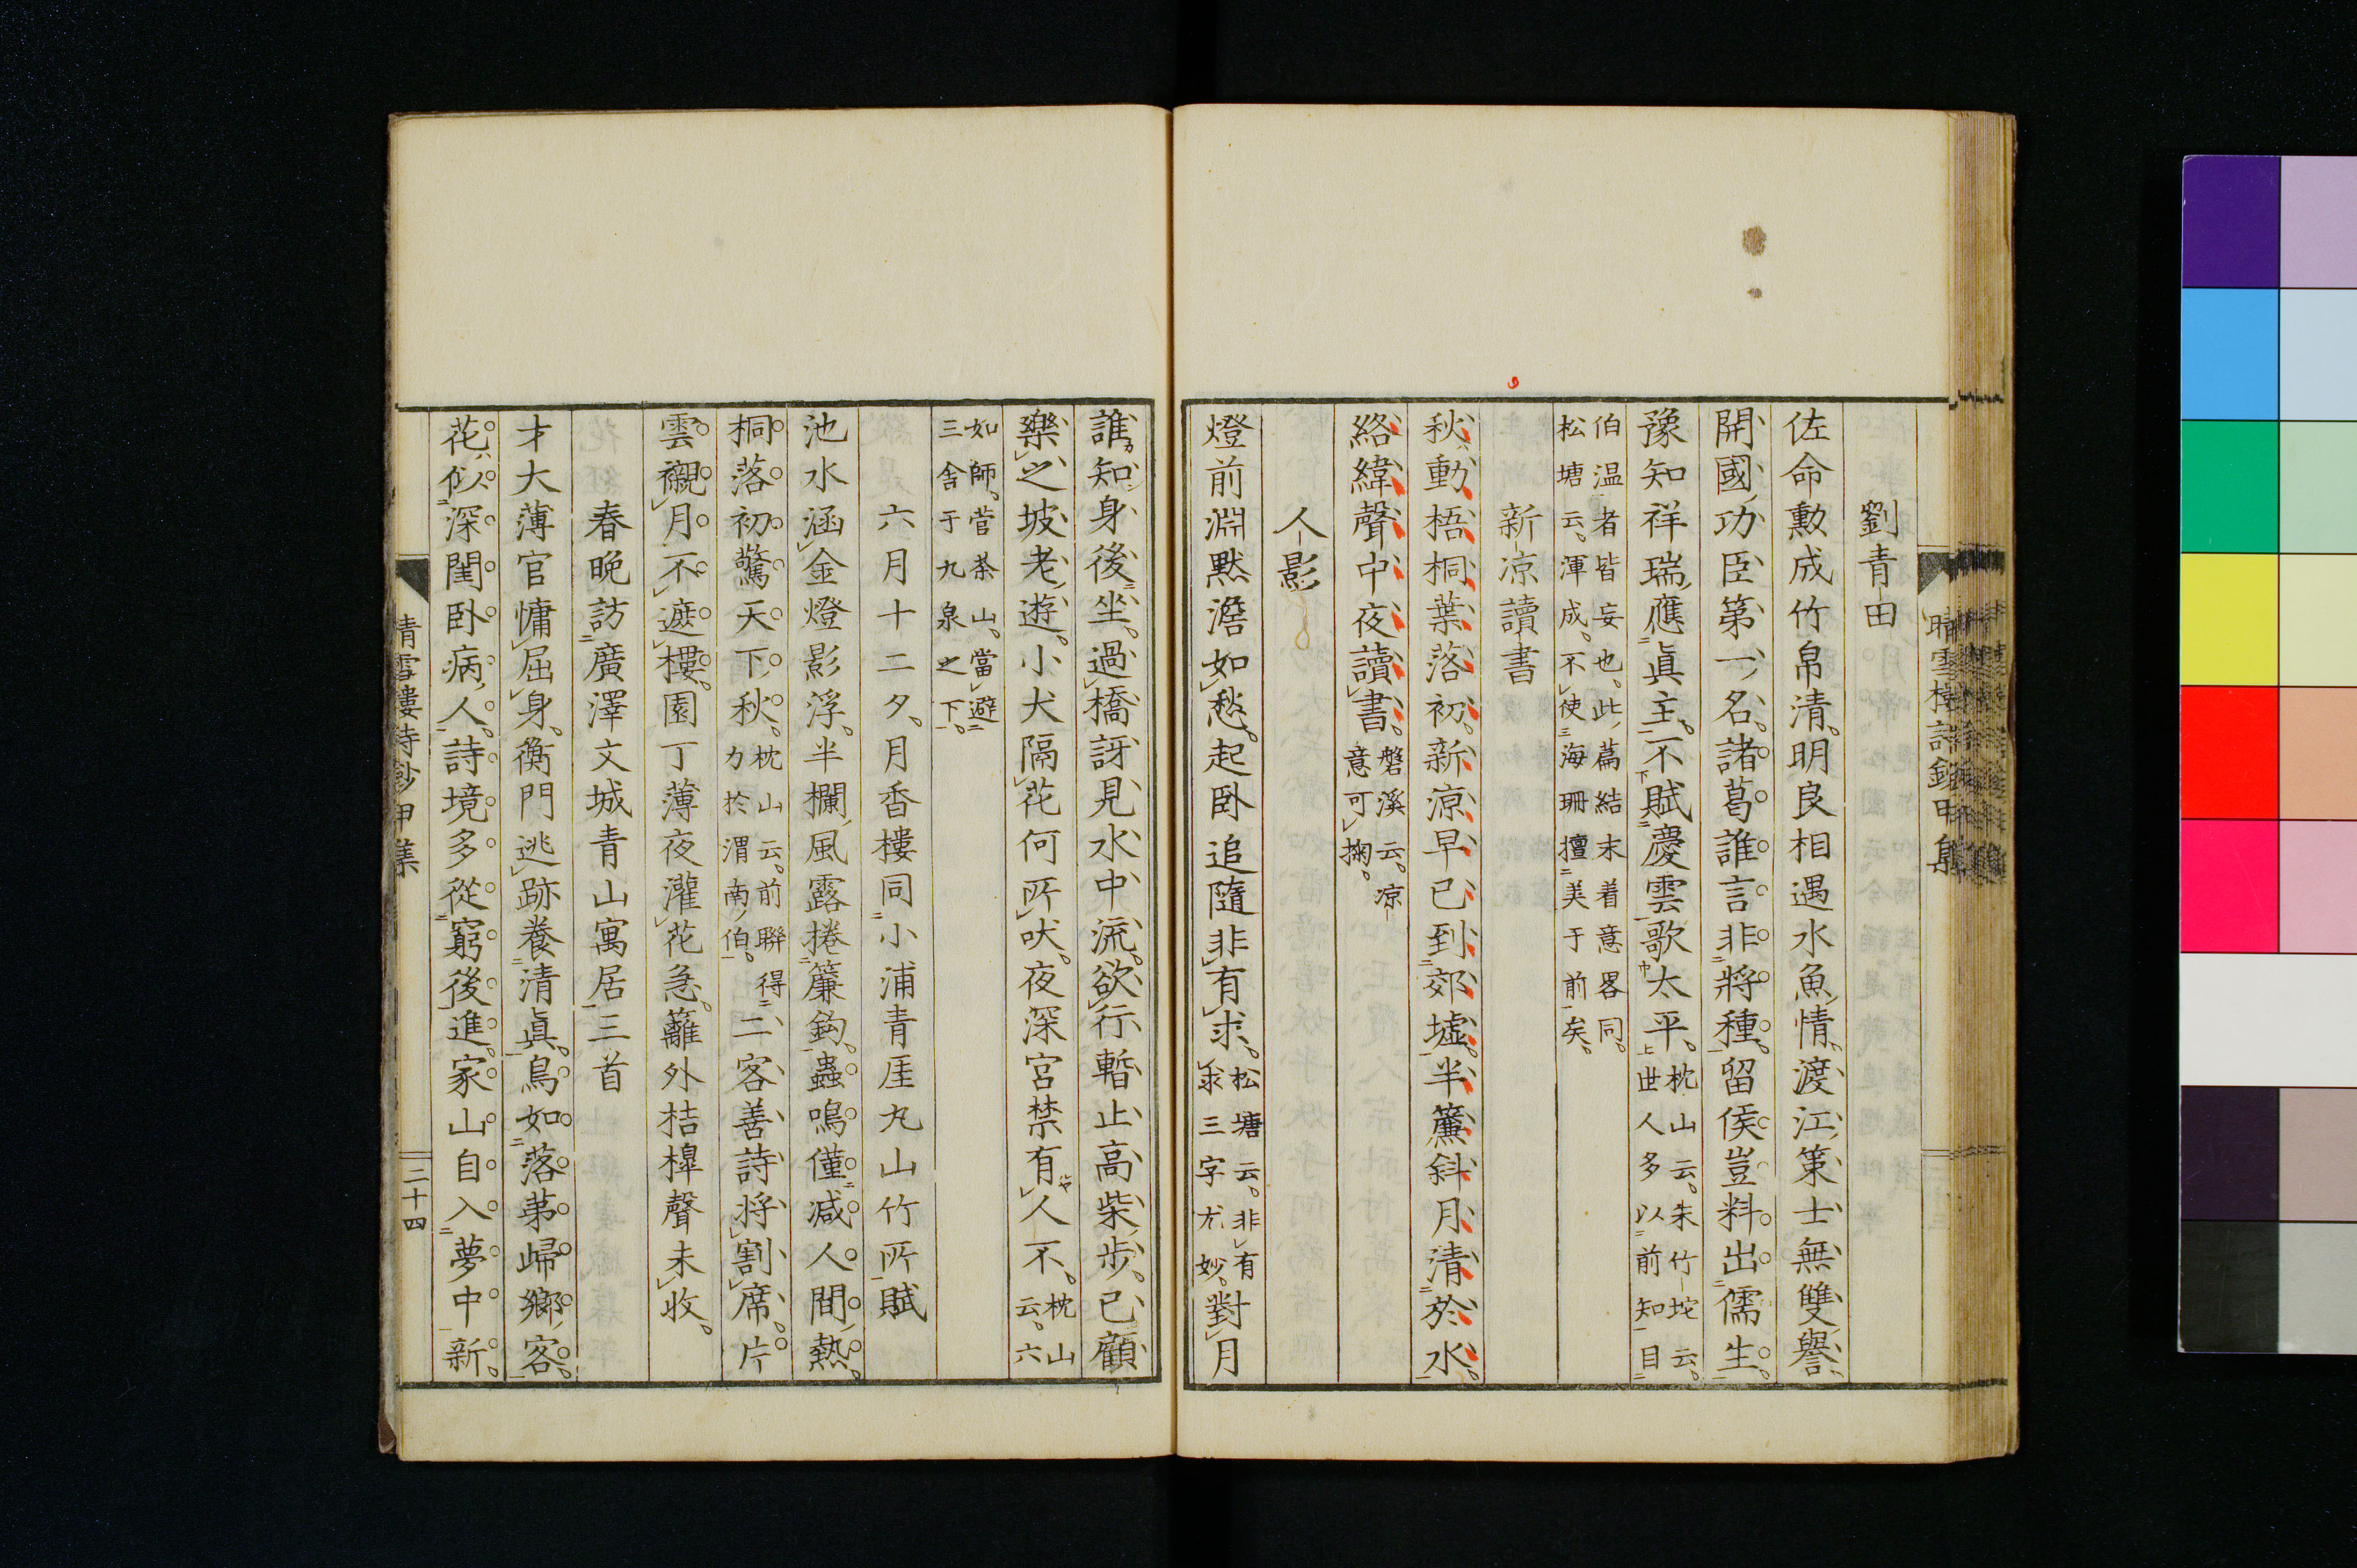 劉青田
佐命勲成竹帛清明良相遇水魚情渡江策士無雙譽
開國功臣第一名諸葛誰言非將種留侯豈料出儒生
豫知祥瑞應眞主不賦慶雲歌太平枕山云朱竹坨云
世人多以前知目
伯温者皆妄也此篇結末着意畧同
松塘云渾成不使海珊擅美于前矣
新凉讀書
秋動梧桐葉落初新涼早已到郊墟半簾斜月清於水
絡緯聲中夜讀書磐溪云凉
意可掬
人影
燈前淵默澹如愁起臥追隨非有求松塘云非有
求三字尤妙對月
誰知身後坐過橋訝見水中流欲行暫止高柴步已顧
樂之坡老遊小犬隔花何所吠夜深宮禁有人不枕山
云六
如師菅茶山當避
三舎于九泉之下
六月十二夕月香樓同小浦青厓丸山竹所賦
池水涵金燈影浮半欄風露捲簾鈎蟲鳴僅减人間熱
桐落初驚天下秋枕山云前聯得
力於渭南伯二客善詩將割席片
雲襯月不遮樓園丁薄夜灌花急籬外桔槹聲未收
春晩訪廣澤文城青山寓居三首
才大薄官慵屈身衡門逃跡養清眞鳥如落苐歸鄉客
花似深閨臥病人詩境多從窮後進家山自入夢中新
晴雪樓詩鈔甲集
二十四